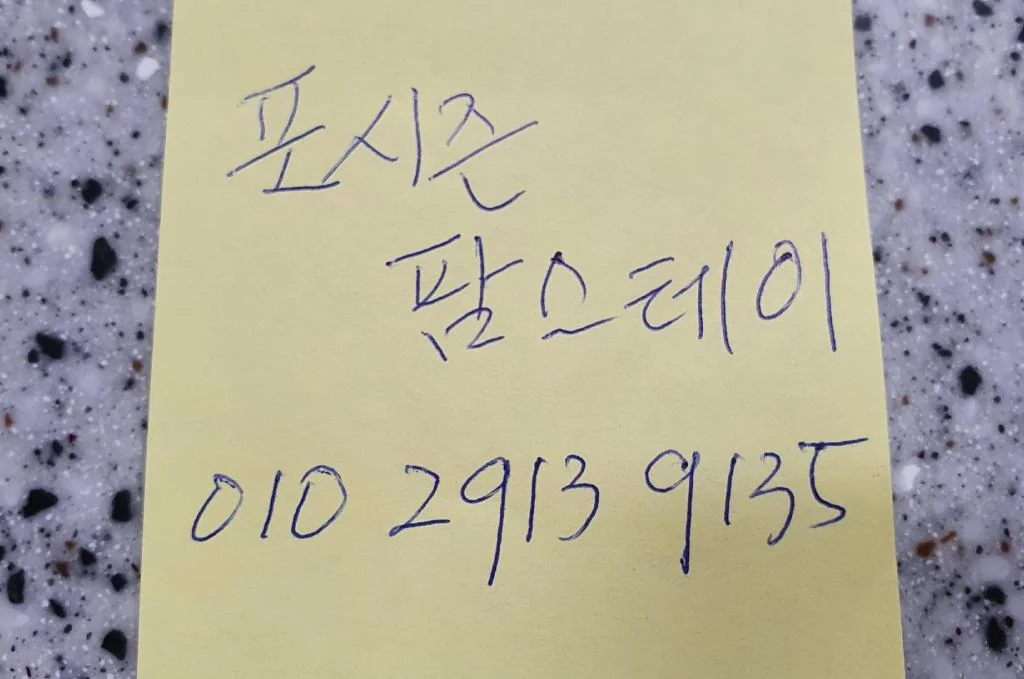 포시즌
팜스테이
010 2913 9135